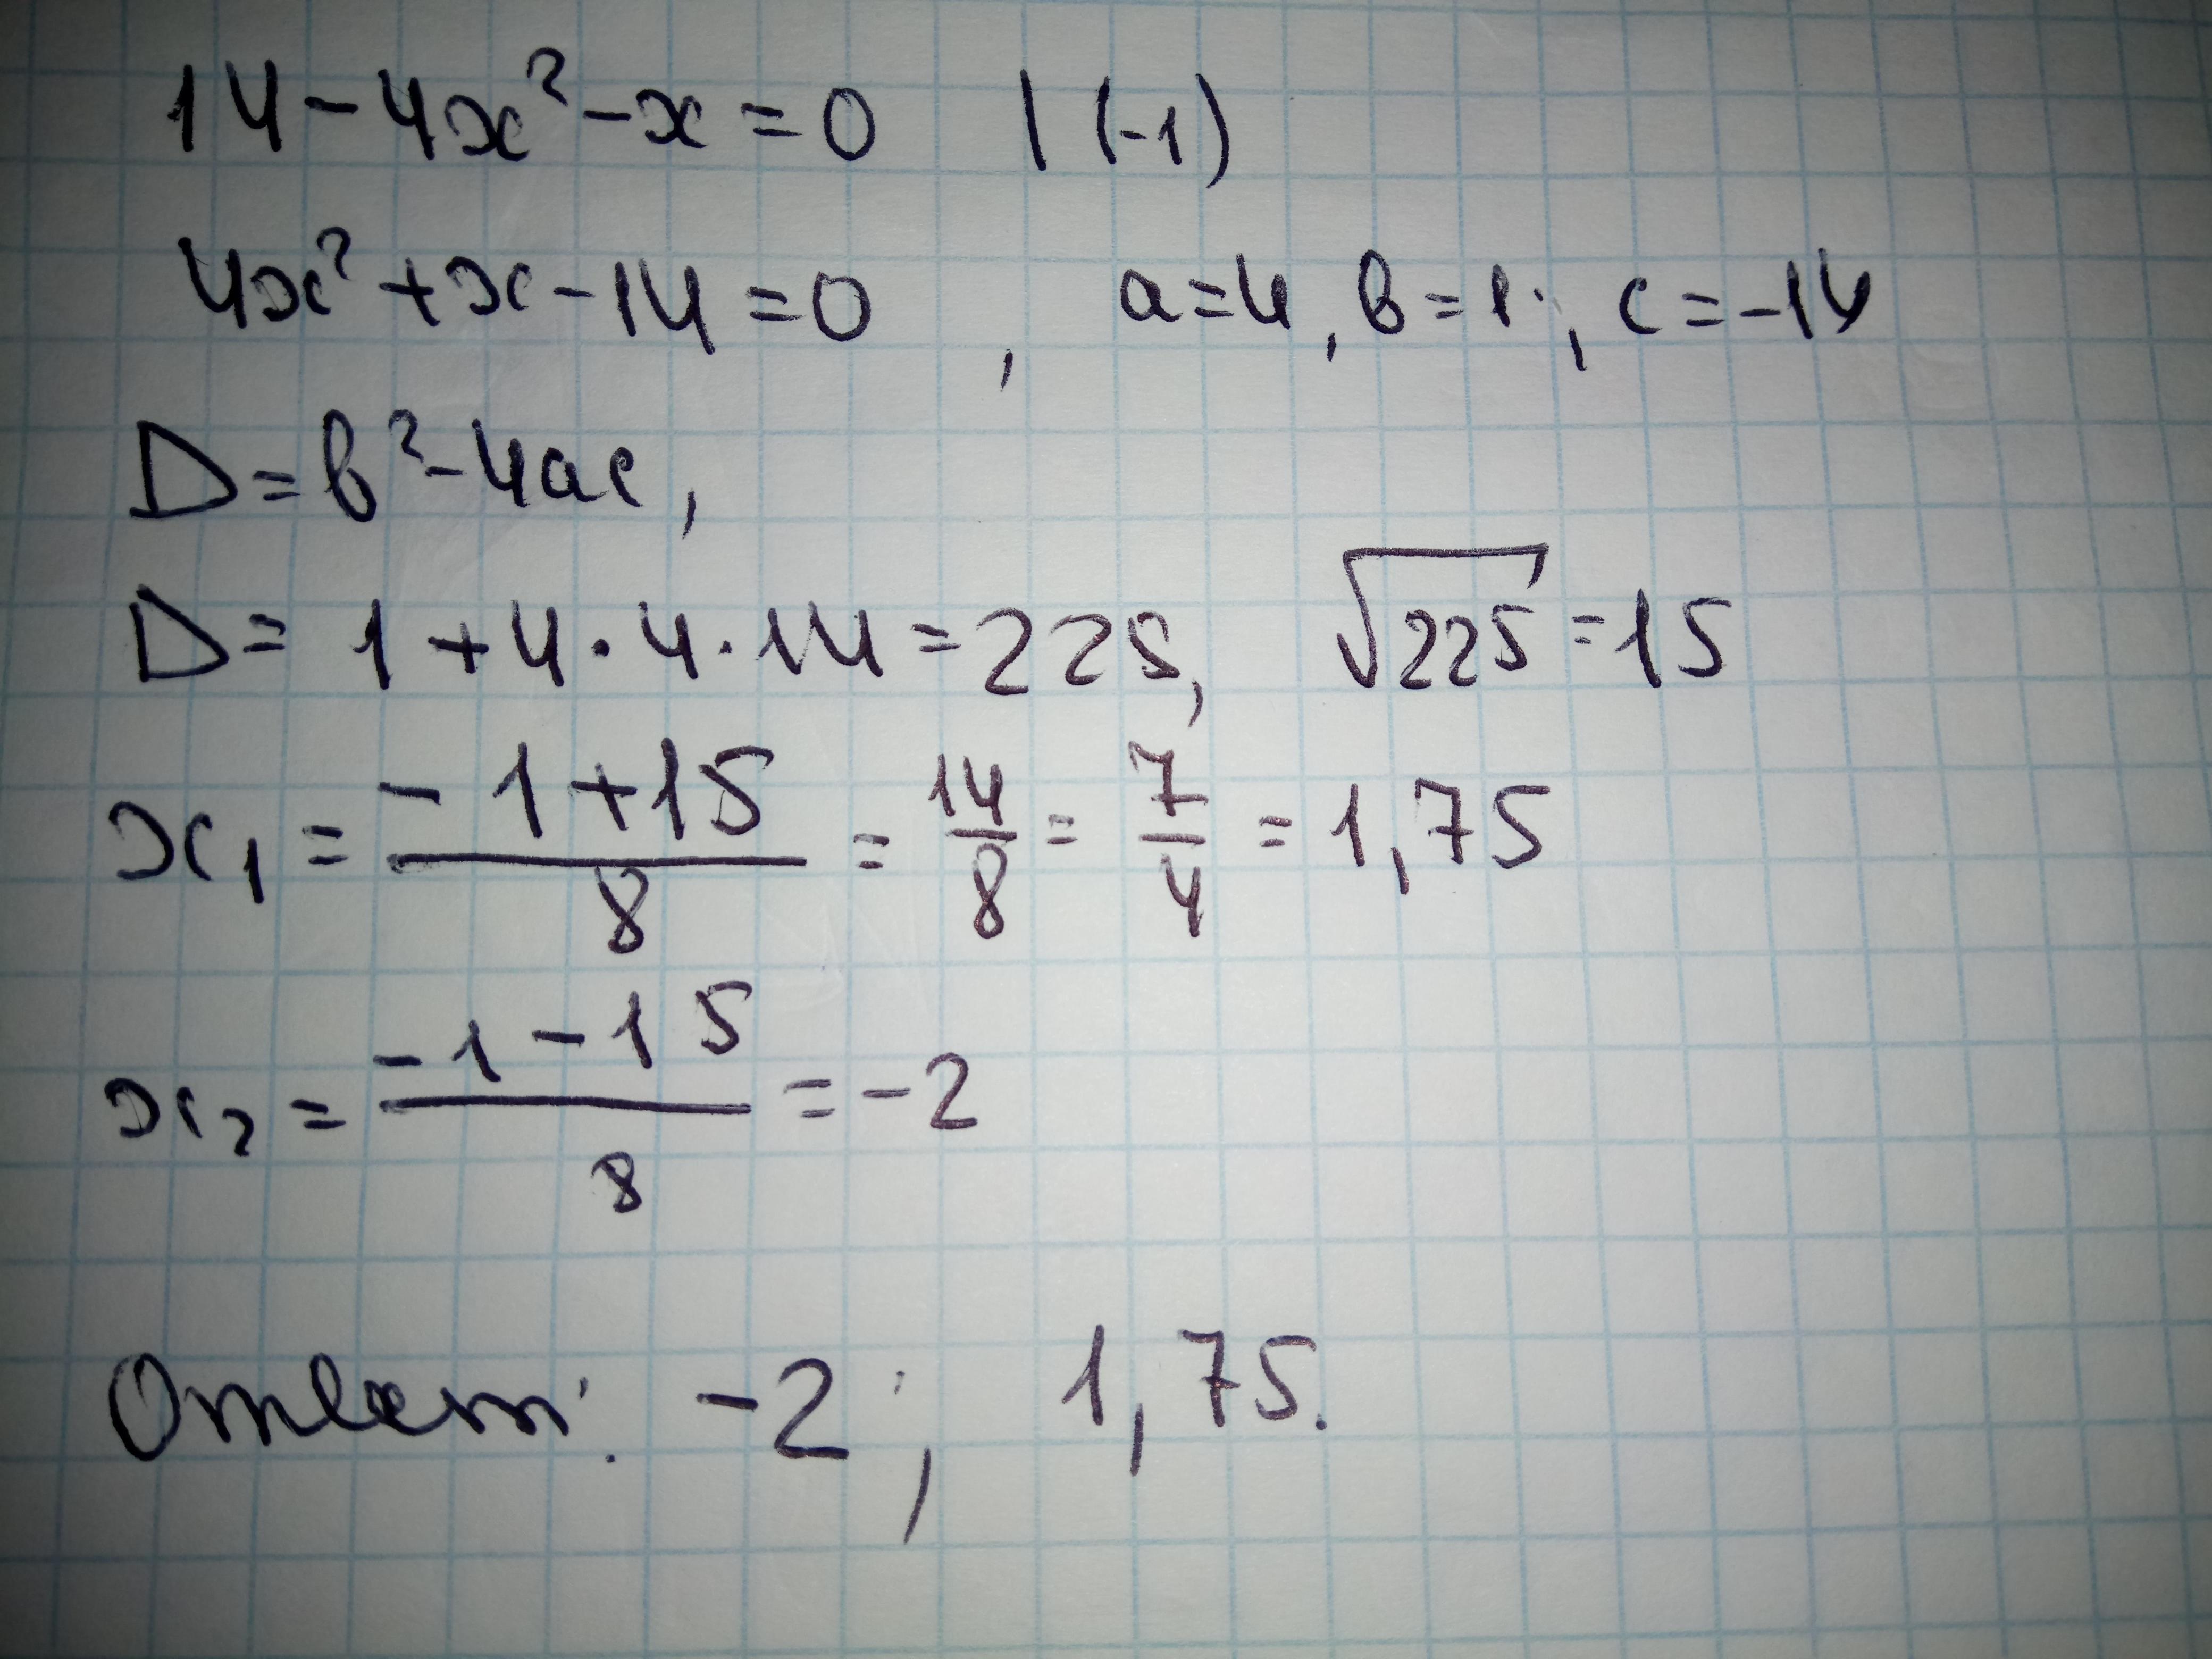 14-4x²-x=0 | (-1)
4x²+x-14=0, a=4, b=1; c=-14
D=b²-4ac,
D= 1+4·4·14=225, √225=15
x₁= (-1+15)/8 = 14/8 = 7/4 = 1,75
x₂= (-1-15)/8 =-2
Ответ: -2; 1,75.